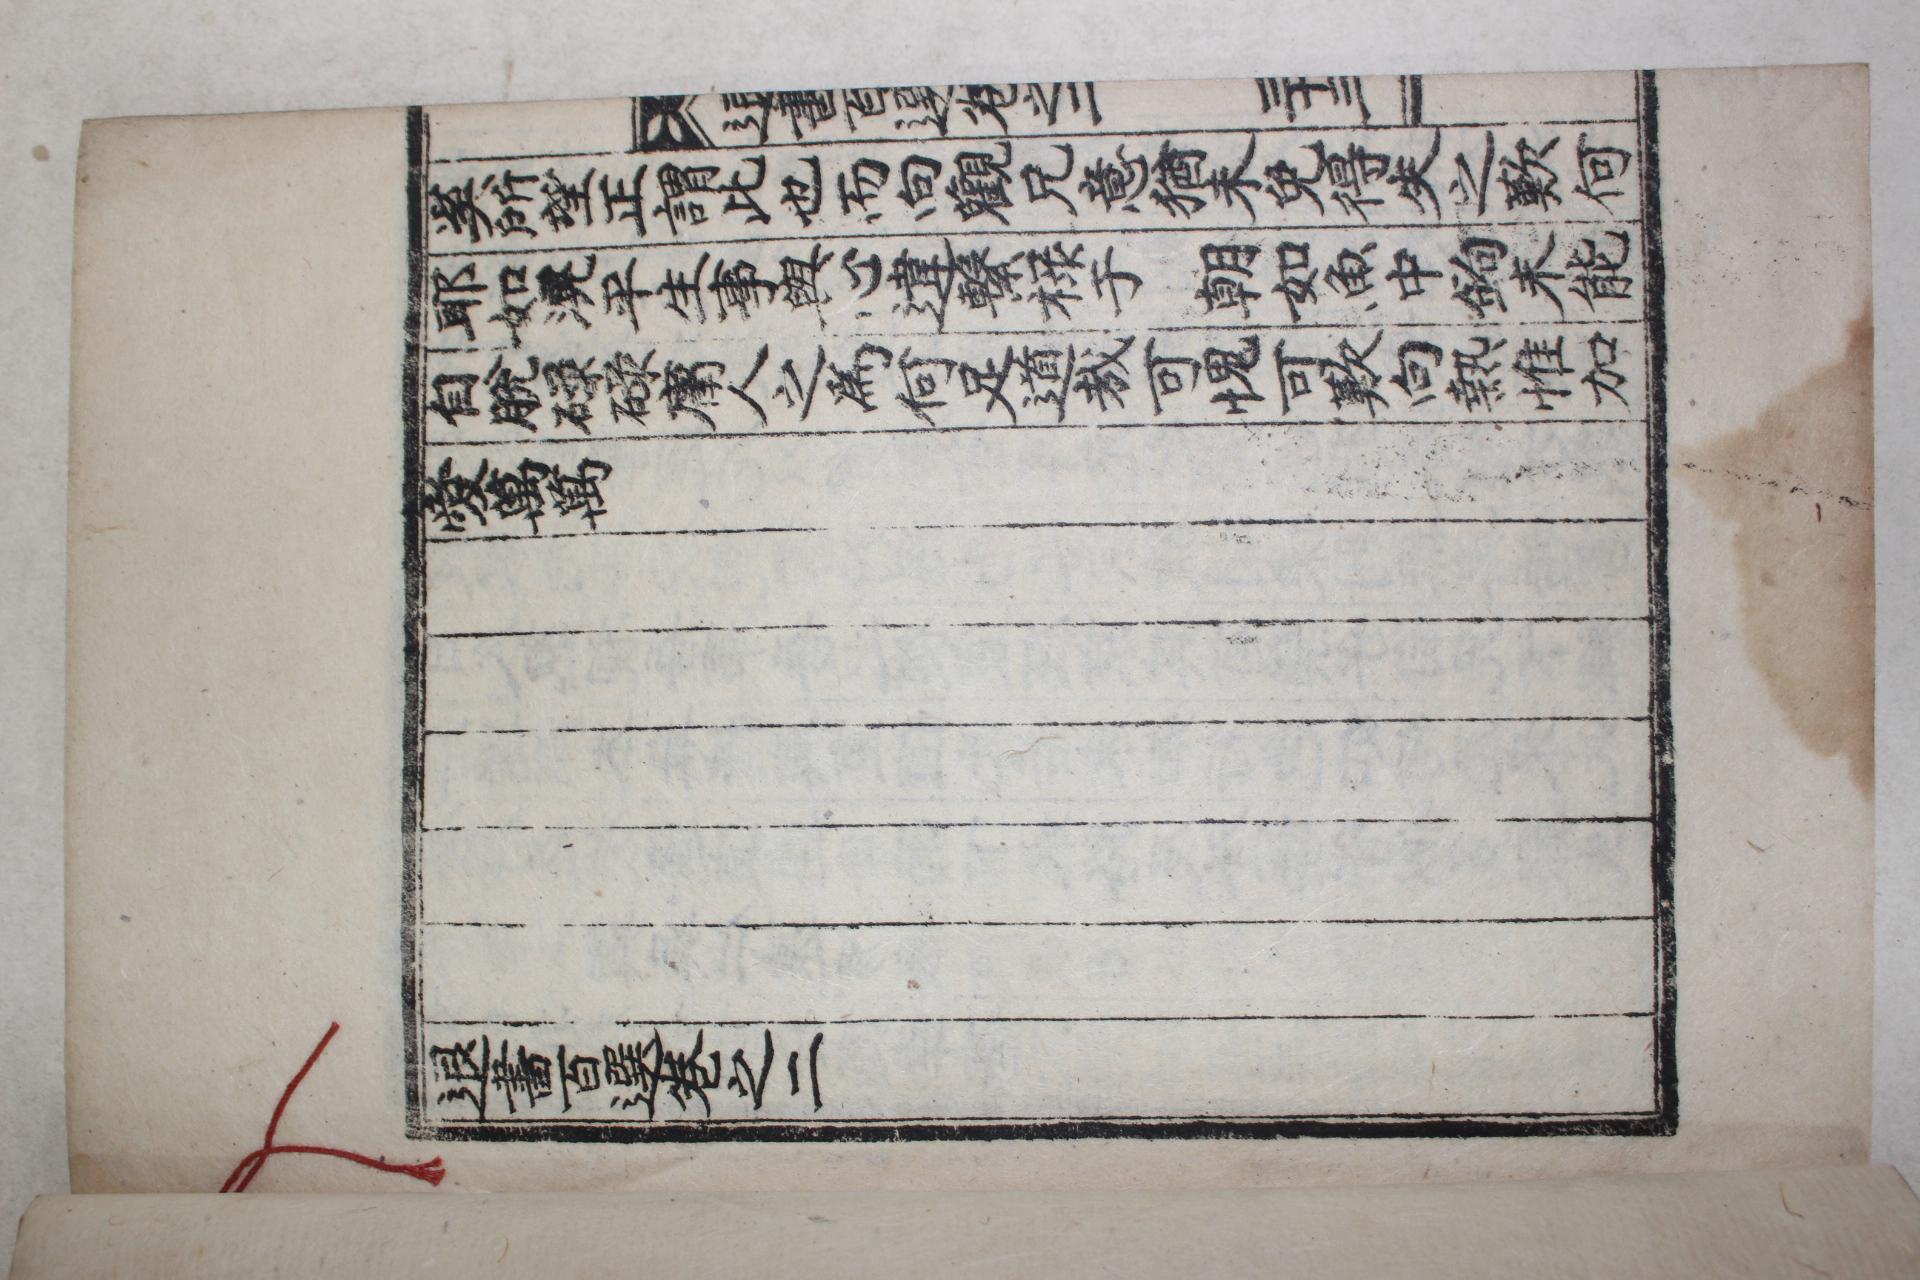 退書百選卷之二 三十三
奚所望正謂此也而向觀兄意猶未免得失之歎何
耶如滉平生事與心違繫祿于 朝如魚中鉤未能
自脫碌碌庸人之爲何足道哉可愧可歎向熱惟加
愛萬萬
退書百選卷之二